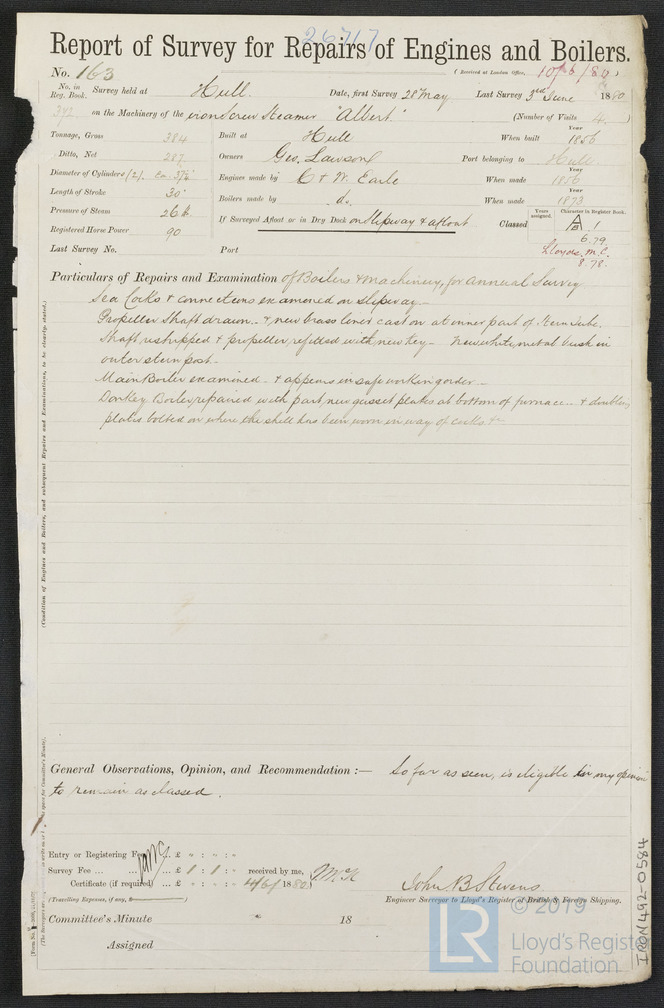 26717
Report of Survey for Repairs of Engines and Boilers.
No. 163 (Received at London Office, 10/6/80)
No. in Reg. Book. 392 Survey held at Hull. Date, first Survey 28 May Last Survey 3rd June 1880
on the Machinery of the iron Screw Steamer "Albert" (Number of Visits 4)
Tonnage, Gross 384 Built at Hull When built Year 1856
Ditto, Net 287 Owners Geo. Lawson Port belonging to Hull
Diameter of Cylinders (2) Engines made by C & W. Earle When made Year 1856
Length of Stroke 30" Boilers made by do. When made Year 1873
Pressure of Steam 26 lb If Surveyed Afloat or in Dry Dock on Slipway & afloat Classed Years assigned. Character in Register Book. A 1
Registered Horse Power 90 6.79
Last Survey No. Port Lloyds. M.C. 8.78
Particulars of Repairs and Examination of Boilers & Machinery, for annual Survey
Sea Cocks & connections examined on slipway
Propeller Shaft drawn - & new brass liner cast on at inner part of stern tube.
Shaft reshipped & propeller refitted with new key - New white metal bush in
outer stern post.
Main Boiler examined - & appears in safe working order -
Donkey Boiler repaired with part new gusset plates at bottom of furnace - & doubling
plates bolted on where the shell has been worn in way of cocks &c
(Condition of Engines and Boilers, and subsequent Repairs and Examinations, to be clearly stated.)
General Observations, Opinion, and Recommendation :— So far as seen, is eligible in my opinion
to remain as classed.
Entry or Registering Fee ... £ " : " : "
Survey Fee ... ... £ 1 : 1 : " received by me,
Certificate (if required) ... £ " : " : " 4/6/1880
(Travelling Expenses, if any, £ )
John B Stevens
Engineer Surveyor to Lloyd's Register of British & Foreign Shipping.
Committee's Minute 18
Assigned
IRON492-0584
LR © 2019
Lloyd's Register
Foundation